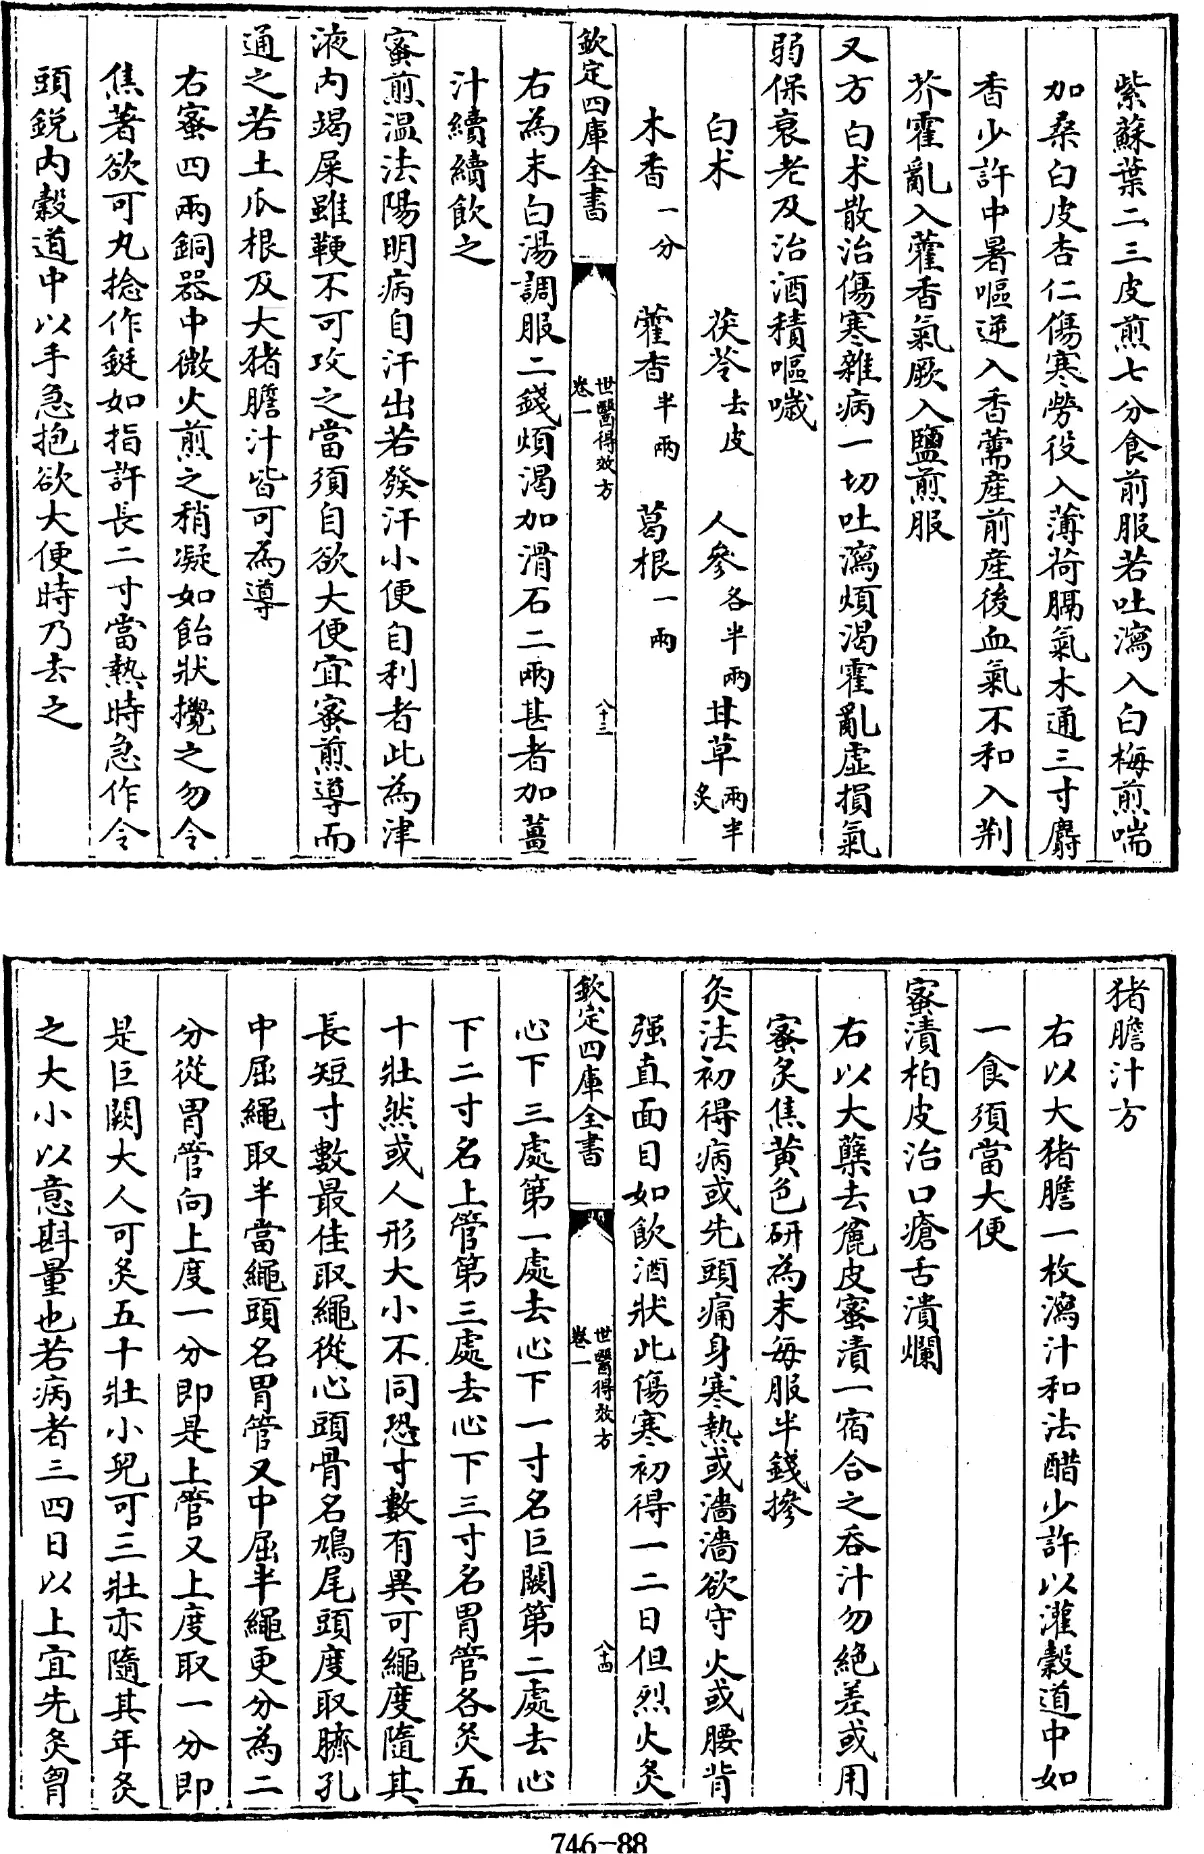 紫蘇葉二三皮煎七分食前服若吐瀉入白梅煎喘
加桑白皮杏仁傷寒勞役入薄荷膈氣木通三寸麝
香少許中暑嘔逆入香薷産前産後血氣不和入荆
芥霍亂入藿香氣厥入鹽煎服
又方白术散治傷寒雜病一切吐瀉煩渴霍亂虛損氣
弱保衰老及治酒積嘔噦
白术 茯苓去皮 人參各半兩 甘草兩半炙
木香一分 藿香半兩 葛根一兩
欽定四庫全書 世醫得效方 卷一 八十三
右為末白湯調服二錢煩渴加滑石二兩甚者加薑
汁續續飲之
蜜煎温法陽明病自汗出若發汗小便自利者此為津
液内竭屎雖鞕不可攻之當須自欲大便宜蜜煎導而
通之若土瓜根及大猪膽汁皆可為導
右蜜四兩銅器中微火煎之稍凝如飴狀攪之勿令
焦著欲可丸捻作鋌如指許長二寸當熱時急作令
頭鋭内穀道中以手急抱欲大便時乃去之
猪膽汁方
右以大猪膽一枚瀉汁和法醋少許以灌穀道中如
一食須當大便
蜜漬柏皮治口瘡舌潰爛
右以大蘖去麄皮蜜漬一宿合之吞汁勿絶差或用
蜜炙焦黄色研為末每服半錢摻
灸法初得病或先頭痛身寒熱或濇濇欲守火或腰背
强直面目如飲酒狀此傷寒初得一二日但烈火灸
欽定四庫全書 世醫得效方 卷一 八十四
心下三處第一處去心下一寸名巨闕第二處去心
下二寸名上管第三處去心下三寸名胃管各灸五
十壯然或人形大小不同恐寸數有異可繩度隨其
長短寸數最佳取繩從心頭骨名鳩尾頭度取臍孔
中屈繩取半當繩頭名胃管又中屈半繩更分為二
分從胃管向上度一分即是上管又上度取一分即
是巨闕大人可灸五十壯小兒可三壯亦隨其年灸
之大小以意斟量也若病者三四日以上宜先灸胷
746-88